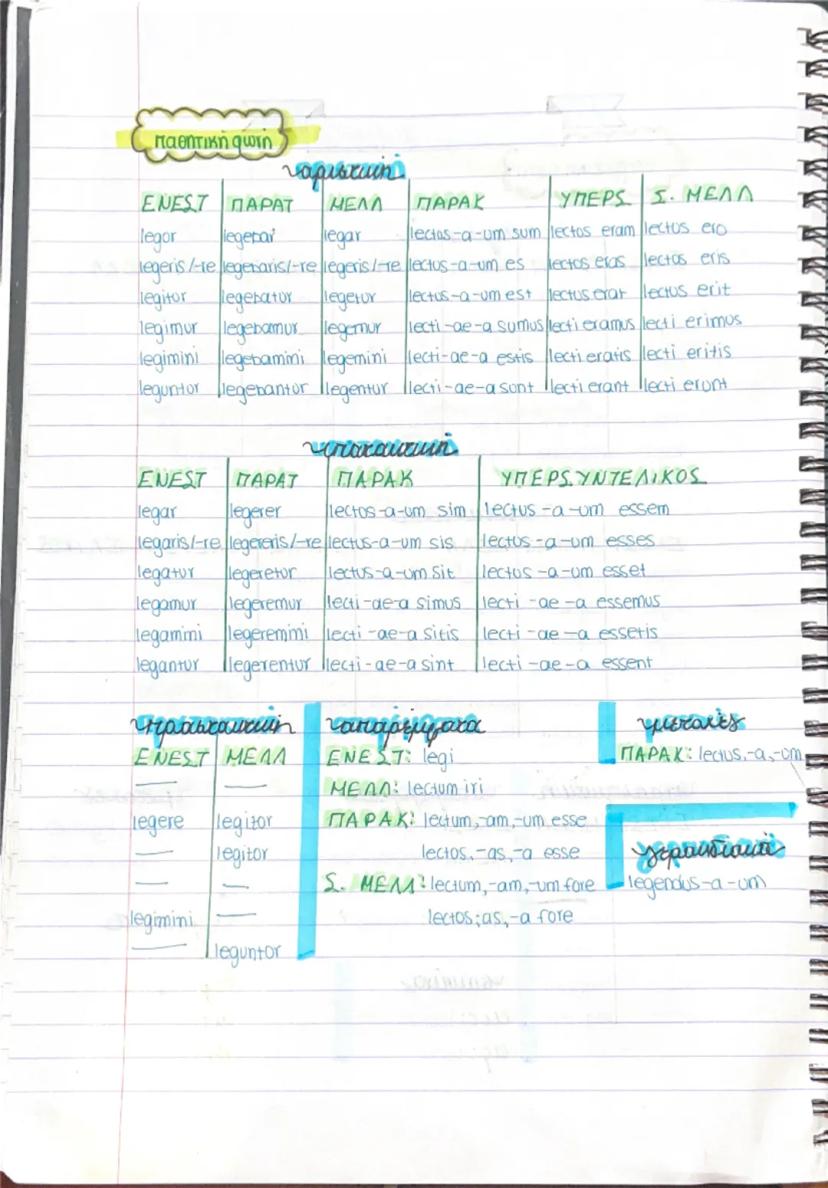 παθητική φωνή
οριστική
ΕΝΕΣΤ ΠΑΡΑΤ ΜΕΛΛ ΠΑΡΑΚ ΥΠΕΡΣ Σ. ΜΕΛΛ
legor legebar legar lectus-a-um sum lectus eram lectus ero
legeris/-re legebaris/-re legeris/-re lectus-a-um es lectus eras lectus eris
legitur legebatur legetur lectus-a-um est lectus erat lectus erit
legimur legebamur legemur lecti-ae-a sumus lecti eramus lecti erimus
legimini legebamini legemini lecti-ae-a estis lecti eratis lecti eritis
leguntur legebantur legentur lecti-ae-a sunt lecti erant lecti erunt
υποτακτική
ΕΝΕΣΤ ΠΑΡΑΤ ΠΑΡΑΚ ΥΠΕΡΣΥΝΤΕΛΙΚΟΣ
legar legerer lectus-a-um sim lectus -a-um essem
legaris/-re legereris/-re lectus-a-um sis lectus -a-um esses
legatur legeretur lectus-a-um sit lectus -a-um esset
legamur legeremur lecti-ae-a simus lecti -ae -a essemus
legamini legeremini lecti -ae-a sitis lecti -ae -a essetis
legantur legerentur lecti-ae-a sint lecti -ae -a essent
προστακτική απαρέμφατα μετοχές
ΕΝΕΣΤ ΜΕΛΛ ΕΝΕΣΤ: legi ΠΑΡΑΚ: lectus,-a,-um
— — ΜΕΛΛ: lectum iri
legere legitor ΠΑΡΑΚ: lectum,-am,-um esse
— legitor lectos,-as,-a esse γερουνδιακό
— — Σ. ΜΕΛΛ: lectum,-am,-um fore legendus-a-um
legimini — lectos;as,-a fore
— leguntor